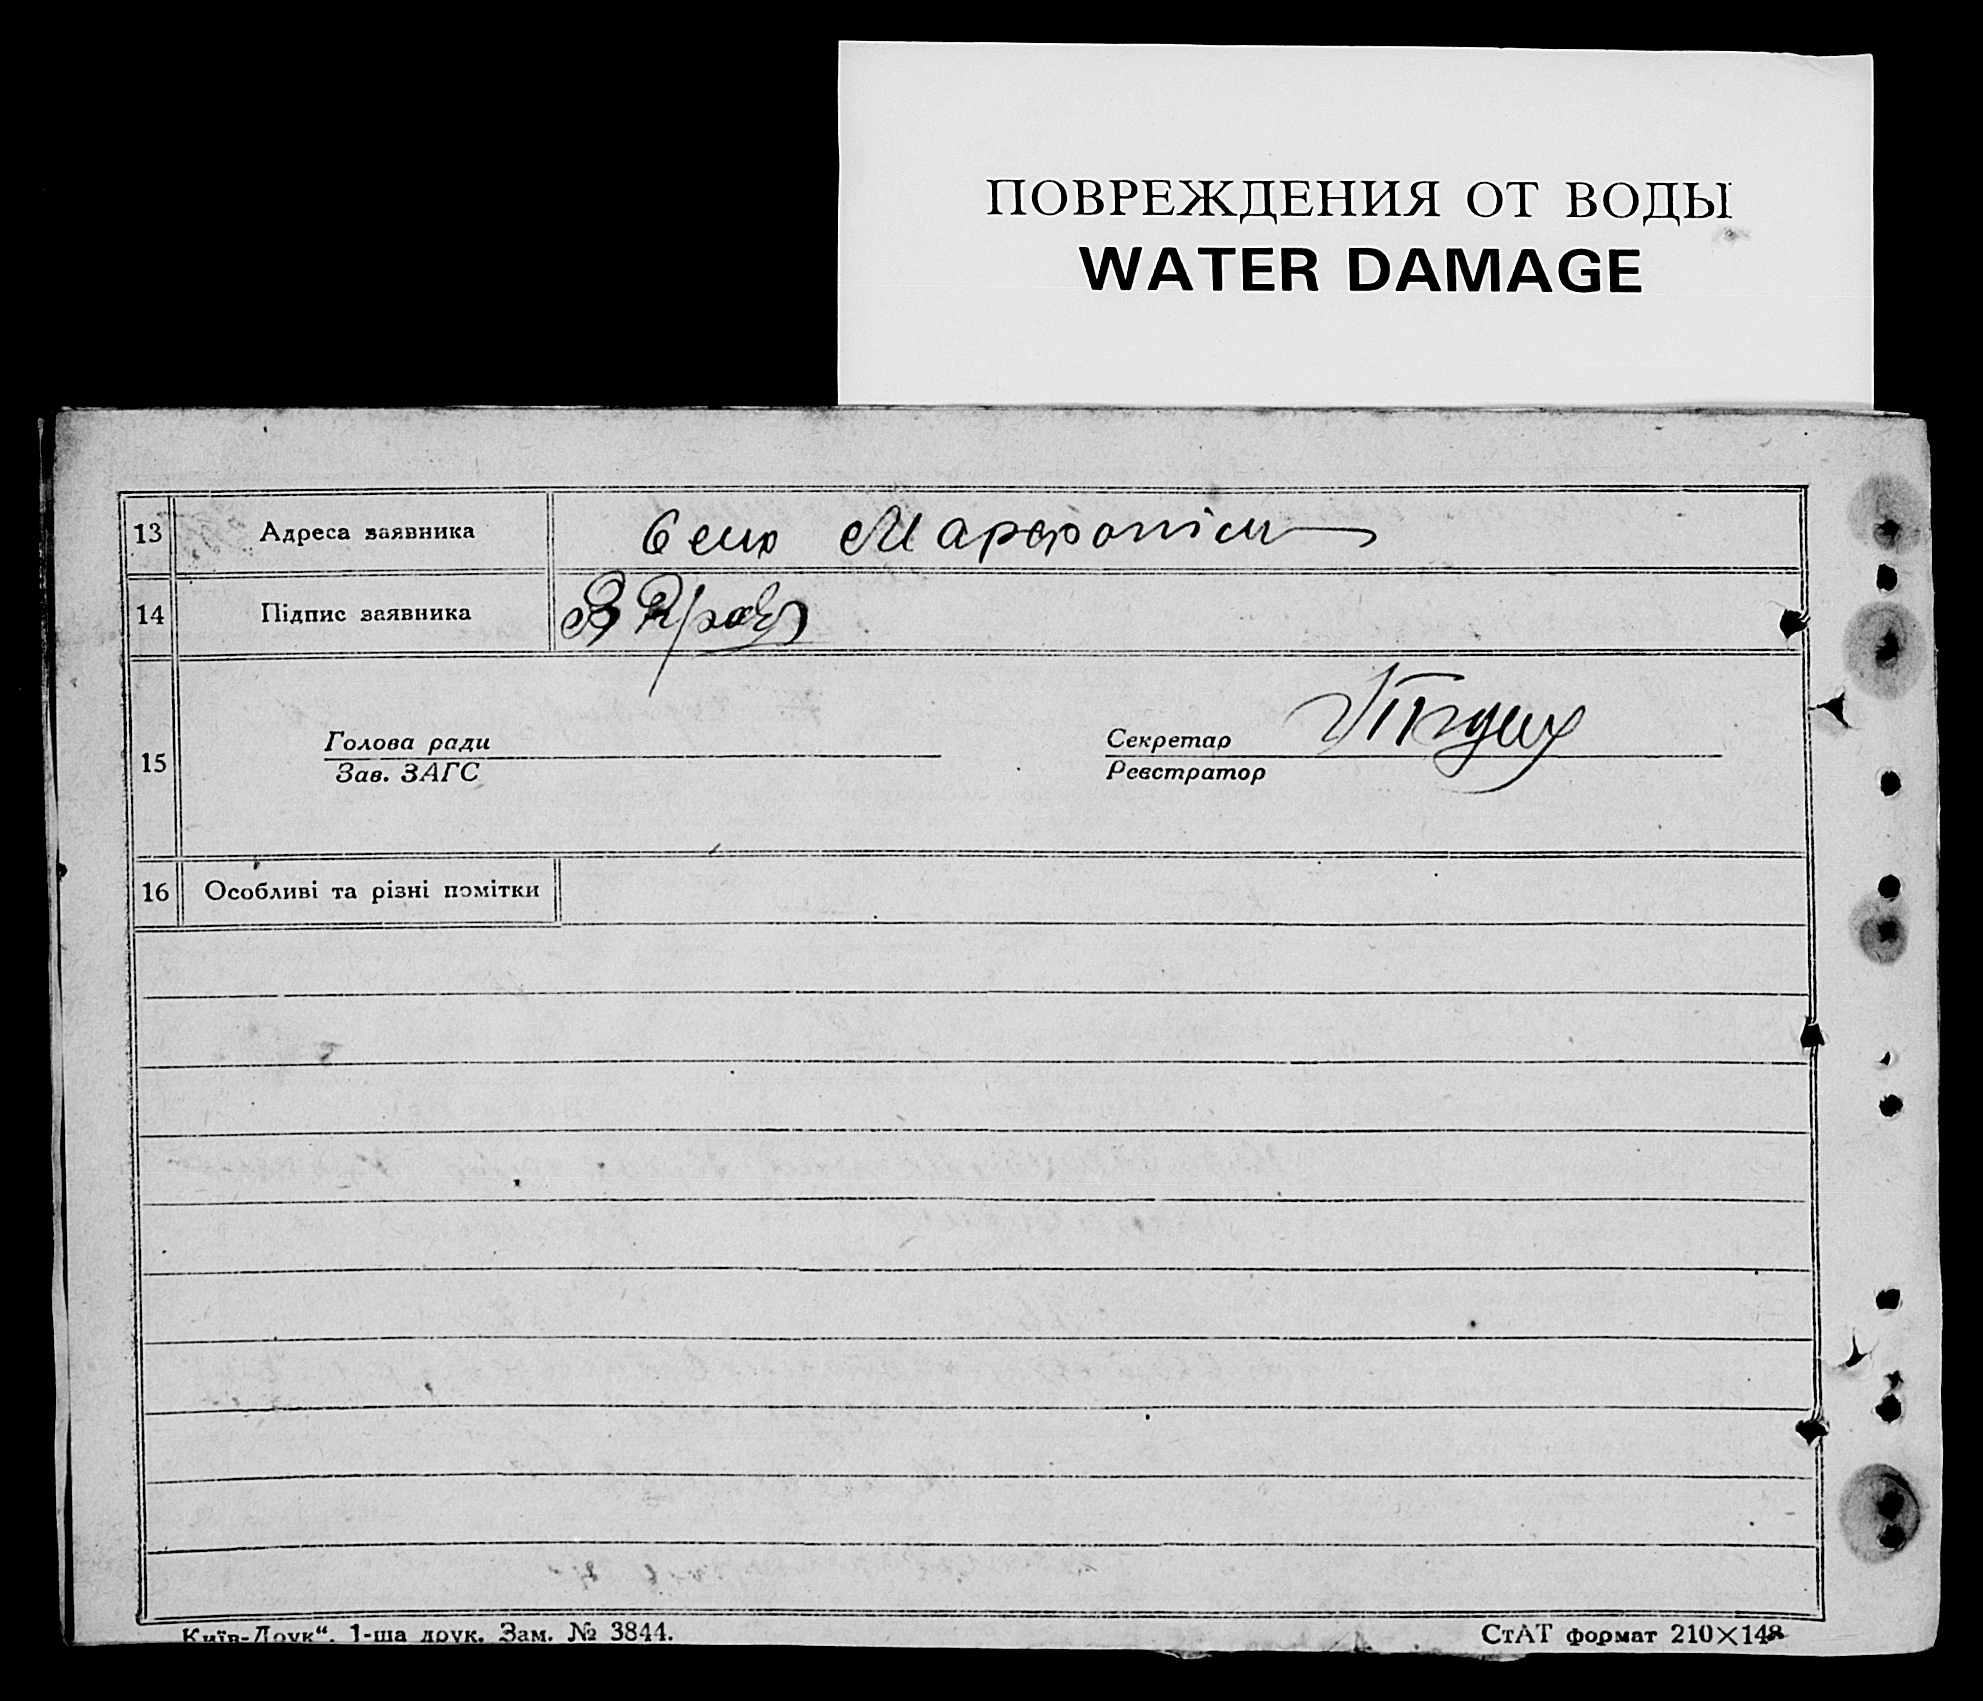 ПОВРЕЖДЕНИЯ ОТ ВОДЫ
WATER DAMAGE
13 Адреса заявника село
14 Підпис заявника
15 Голова ради Секретар
Зав. ЗАГС Реєстратор
16 Особливі та різні помітки
Київ-Друк“. 1-ша друк. Зам. № 3844. СтАТ формат 210×148